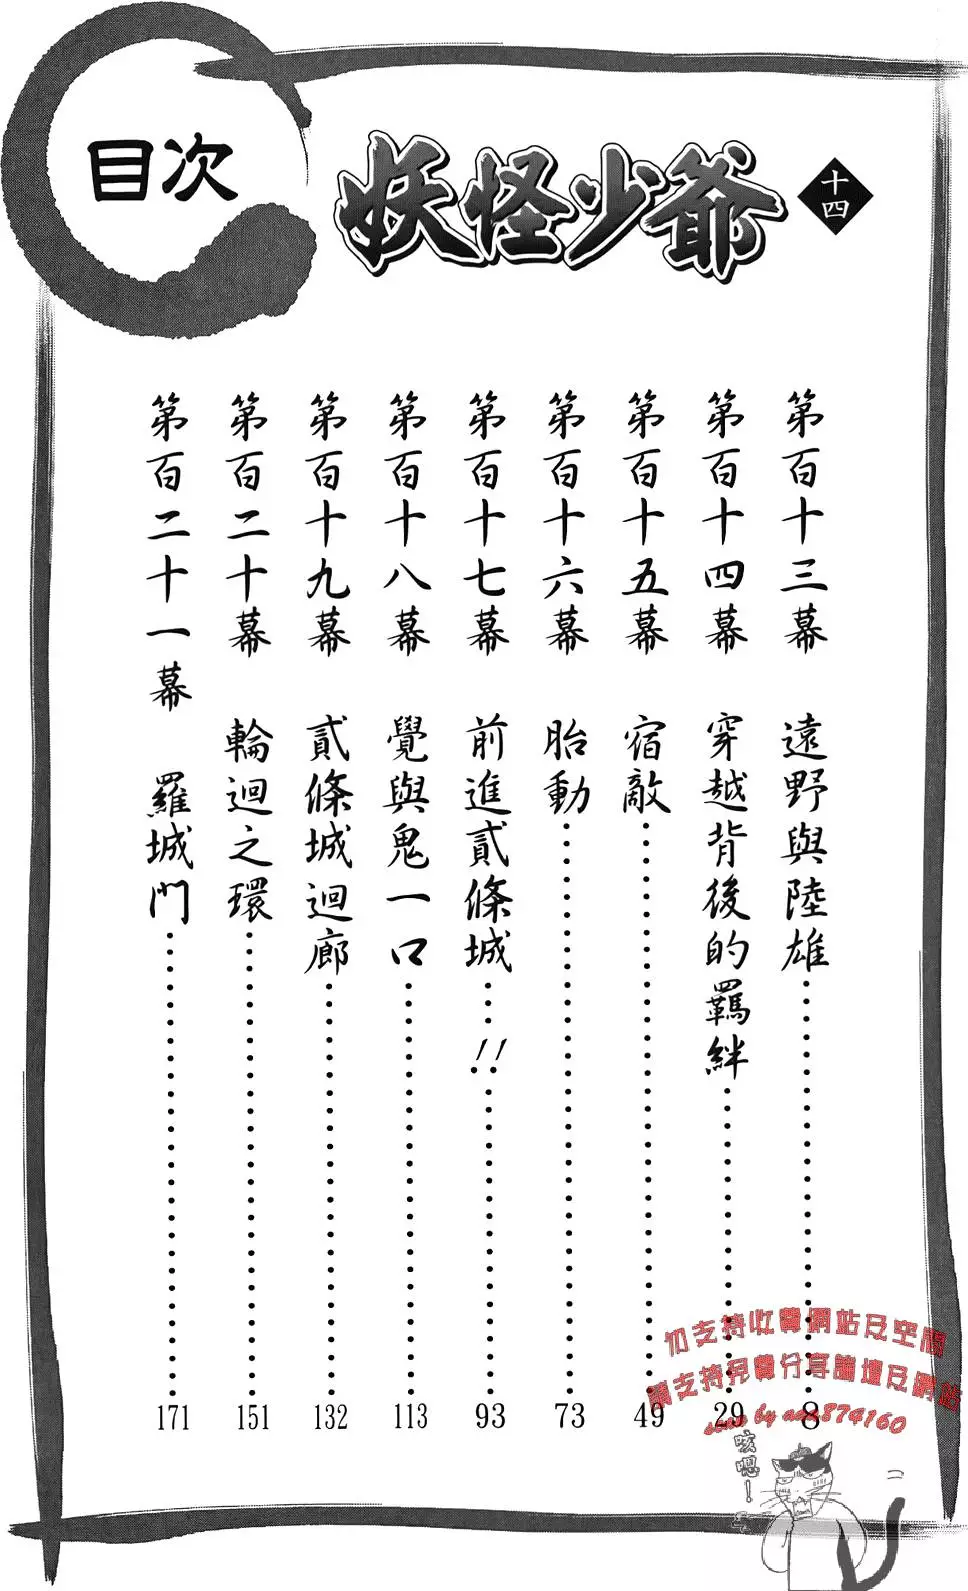 目次
妖怪少爺
十四
第百十三幕 遠野與陸雄……8
第百十四幕 穿越背後的羈絆……29
第百十五幕 宿敵……49
第百十六幕 胎動……73
第百十七幕 前進貳條城…!!……93
第百十八幕 覺與鬼一口……113
第百十九幕 貳條城迴廊……132
第百二十幕 輪迴之環……151
第百二十一幕 羅城門……171
勿支持收費網站及空間
請支持免費分享論壇及網站
scan by aaa874160
咳嗯！